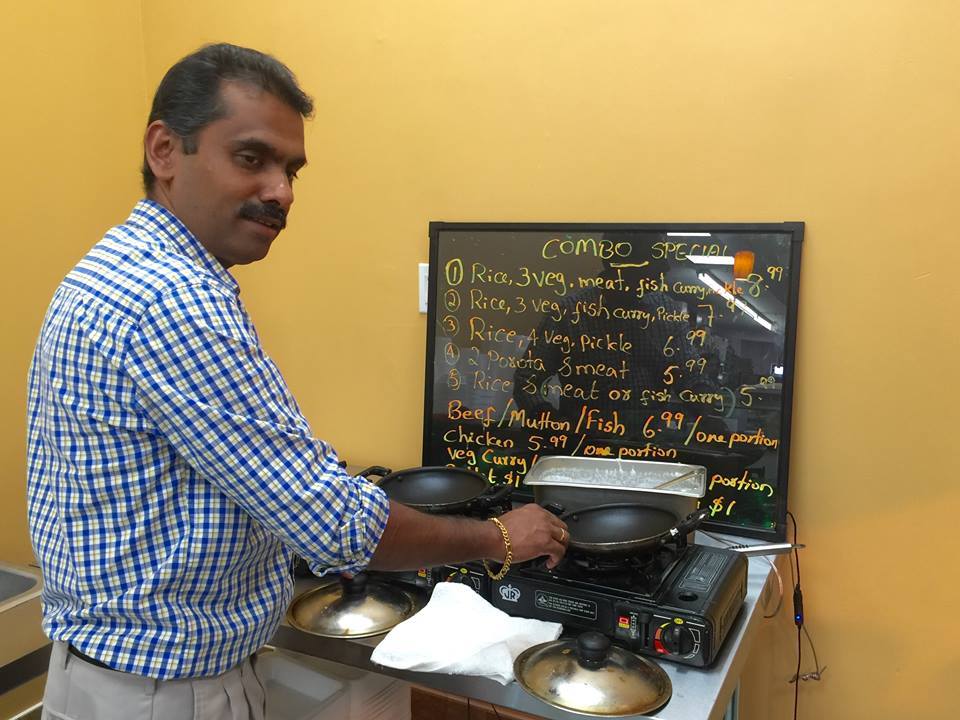 COMBO SPECIAL
1 Rice, 3 veg, meat, fish curry, 8.99
2 Rice, 3 veg, fish curry, Pickle 7.
3 Rice, 4 veg, Pickle 6.99
4 2 Porota & meat 5.99
5 Rice & (meat or fish curry) 5.99
Beef/Mutton/Fish 6.99/one portion
Chicken 5.99/one portion
Veg Curry/ portion
$1 $1
JR